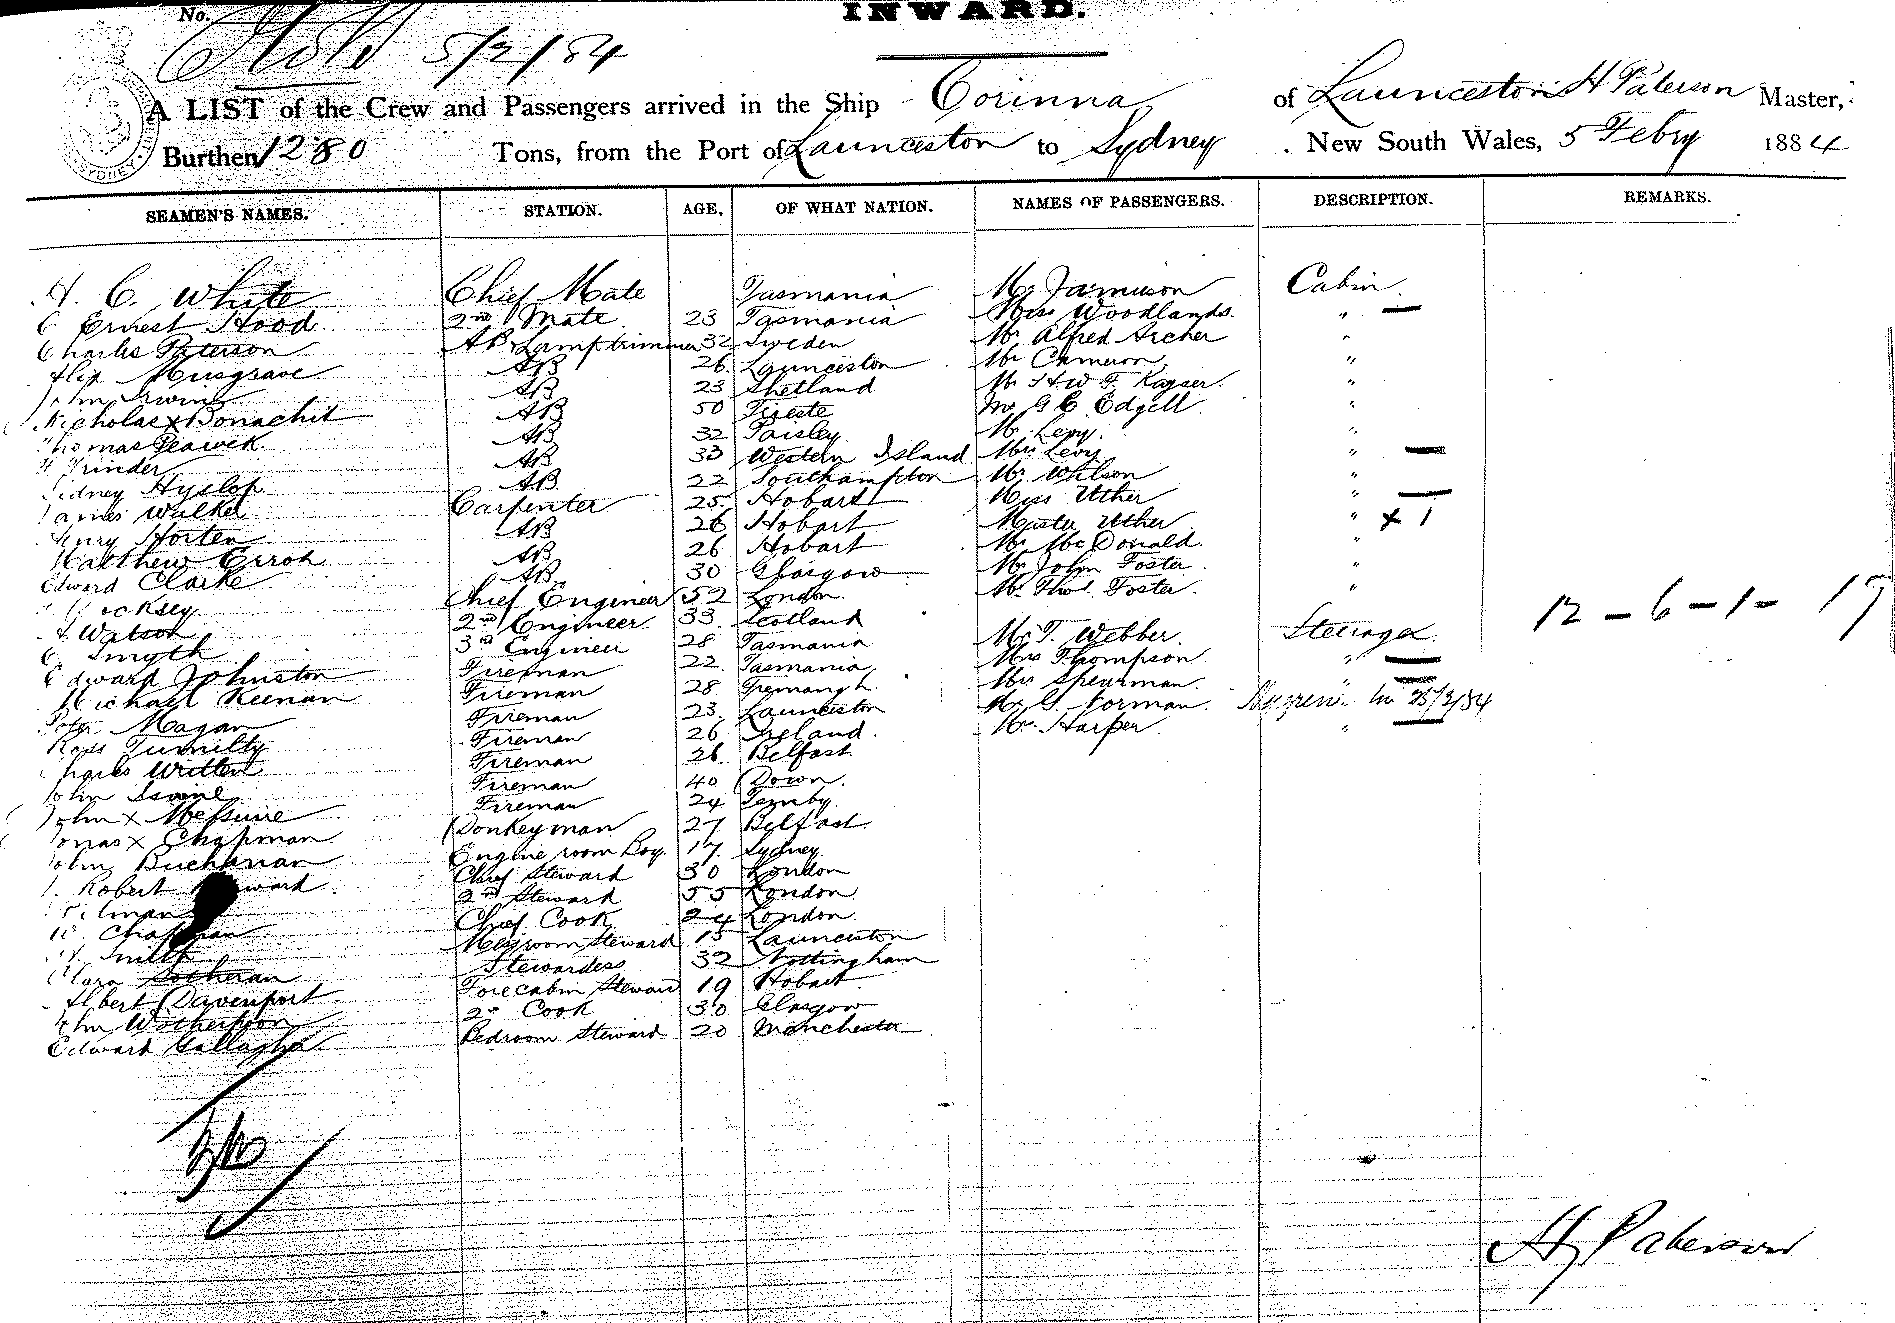 No.
INWARD.
5/2/84
A LIST of the Crew and Passengers arrived in the Ship Corinna of Launceston H Paterson Master,
Burthen 1280 Tons, from the Port of Launceston to Sydney New South Wales, 5 Febry 1884
SEAMEN'S NAMES. STATION. AGE. OF WHAT NATION. NAMES OF PASSENGERS. DESCRIPTION. REMARKS.
H. C. White Chief Mate Tasmania Mr Jamieson Cabin
C Ernest Hood 2nd Mate 23 Tasmania Miss Woodlands. " —
Charles Paterson AB Lamptrimmer 32 Sweden Mr Alfred Archer "
Musgrave AB 26 Launceston Mr Cameron "
John Irwing AB 23 Shetland Mr H W F. Kayser. "
Nicholas x Bonachit AB 50 Trieste Mr G C Edgell "
Thomas AB 32 Paisley Mr Levy. "
Grinder AB 33 Western Island Mrs Levy " —
Sidney Hyslop AB 22 Southampton Mr Wilson "
James Walker Carpenter 25 Hobart Miss Uther " —
Henry Horten AB 26 Hobart Master Uther " x 1
Matthew Erroh AB 26 Hobart Mr McDonald. "
Edward Clarke AB 30 Glasgow Mr John Foster "
Chief Engineer 52 London Mr Thos. Foster. "
Watson 2nd Engineer 33 Scotland
Smyth 3rd Engineer 28 Tasmania Mr T. Webber Steerage 12 - 6 - 1 - 17
Edward Johnston Fireman 22 Tasmania Mrs Thompson " —
Michael Keenan Fireman 28 Mrs Spearman " —
Peter Magan Fireman 23 Launceston Mr G. Norman 25/2/84
Ross Tumilty Fireman 26 Ireland Mr Harper "
Charles Written Fireman 26 Belfast
John Fireman 40 Down
John x McGuire Fireman 24 Tenby
x Chapman Donkeyman 27 Belfast
John Buchanan Engine room Boy 17 Sydney
Robert Chief Steward 30 London
2nd Steward 55 London
Chapman Chief Cook 24 London
Smith Messroom Steward 15 Launceston
Clara Stewardess 32 Nottingham
Albert Davenport Forecabin Steward 19 Hobart
John Wotherspoon 2nd Cook 30 Glasgow
Edward Gallagher Bedroom Steward 20 Manchester
H Paterson